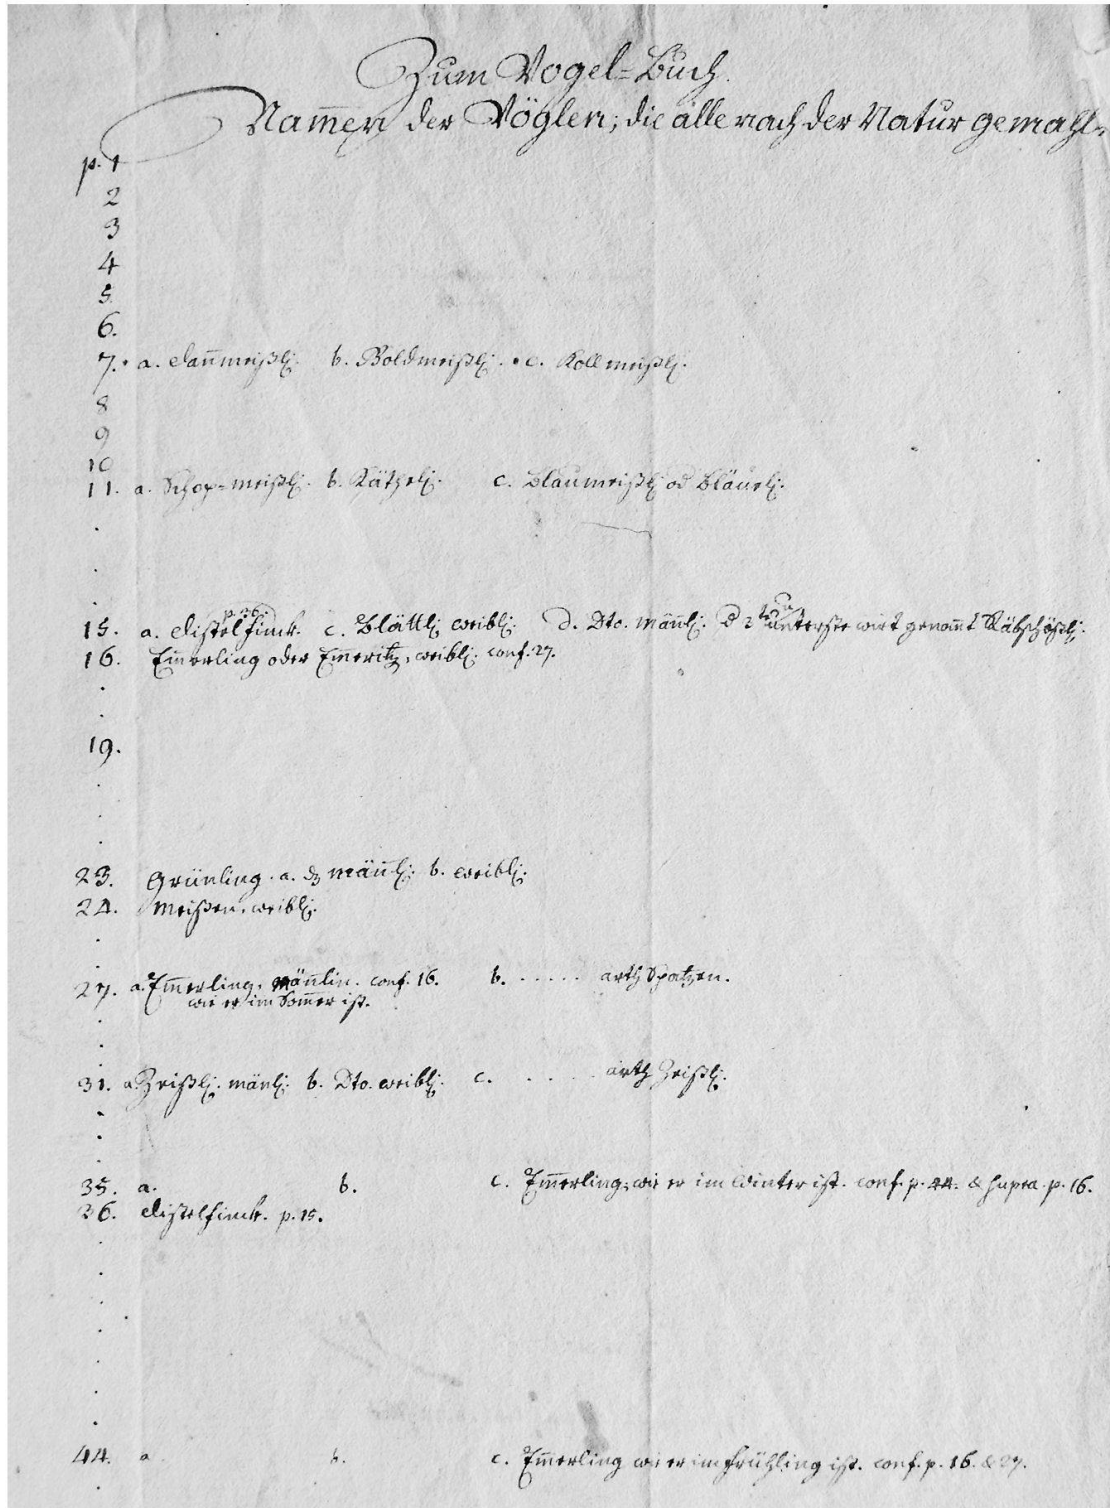 Zum Vogel-Buch.
Nam̅en der Vöglen; die alle nach der Natur gemahl-
p. 1
2
3
4
5.
6.
7. a. Tan̅meißlj. b. Goldmeißlj. c. Kollmeißlj.
8
9
10
11. a. Schop-meißlj. b. Kätzelj. c. Blaumeißlj od Bläuelj.
.
.
.
p. 36.
15. a. Distelfinck. c. Blättlj weiblj. d. Dto. män̅lj. unterste wirt genan̅t
16. Em̅erling oder Em̅eritz, weiblj. conf. 27.
.
.
19.
.
.
.
23. Grünling. a. män̅lj. b. weiblj.
24. Meißen, weiblj.
.
.
27. a. Em̅erling, män̅lin. conf. 16. b. ..... arth Spatzen.
wie er im Som̅er ist.
.
.
31. a. Zeißlj. män̅lj. b. Dto. weiblj. c. .... arth Zeißlj.
.
.
.
35. a. b. c. Em̅erling, wie er im Winter ist. conf. p. 44. & supra p. 16.
36. Distelfinck. p. 15.
.
.
.
.
.
.
44. a. b. c. Em̅erling wie er im Frühling ist. conf. p. 16. & 27.
.